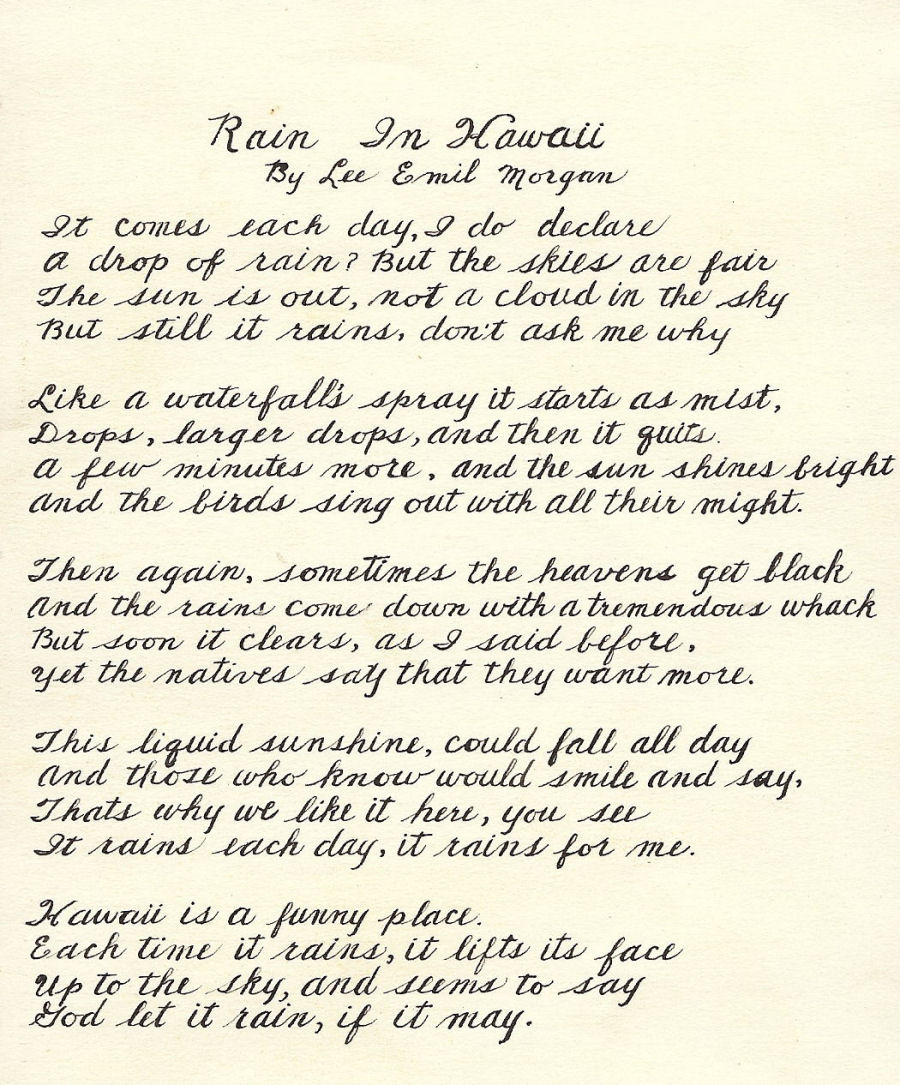 Rain In Hawaii
By Lee Emil Morgan
It comes each day, I do declare
A drop of rain? But the skies are fair
The sun is out, not a cloud in the sky
But still it rains, don't ask me why
Like a waterfall's spray it starts as mist,
Drops, larger drops, and then it quits.
A few minutes more, and the sun shines bright
And the birds sing out with all their might.
Then again, sometimes the heavens get black
And the rains come down with a tremendous whack
But soon it clears, as I said before,
Yet the natives say that they want more.
This liquid sunshine, could fall all day
And those who know would smile and say,
Thats why we like it here, you see
It rains each day, it rains for me.
Hawaii is a funny place.
Each time it rains, it lifts its face
Up to the sky, and seems to say
God let it rain, if it may.